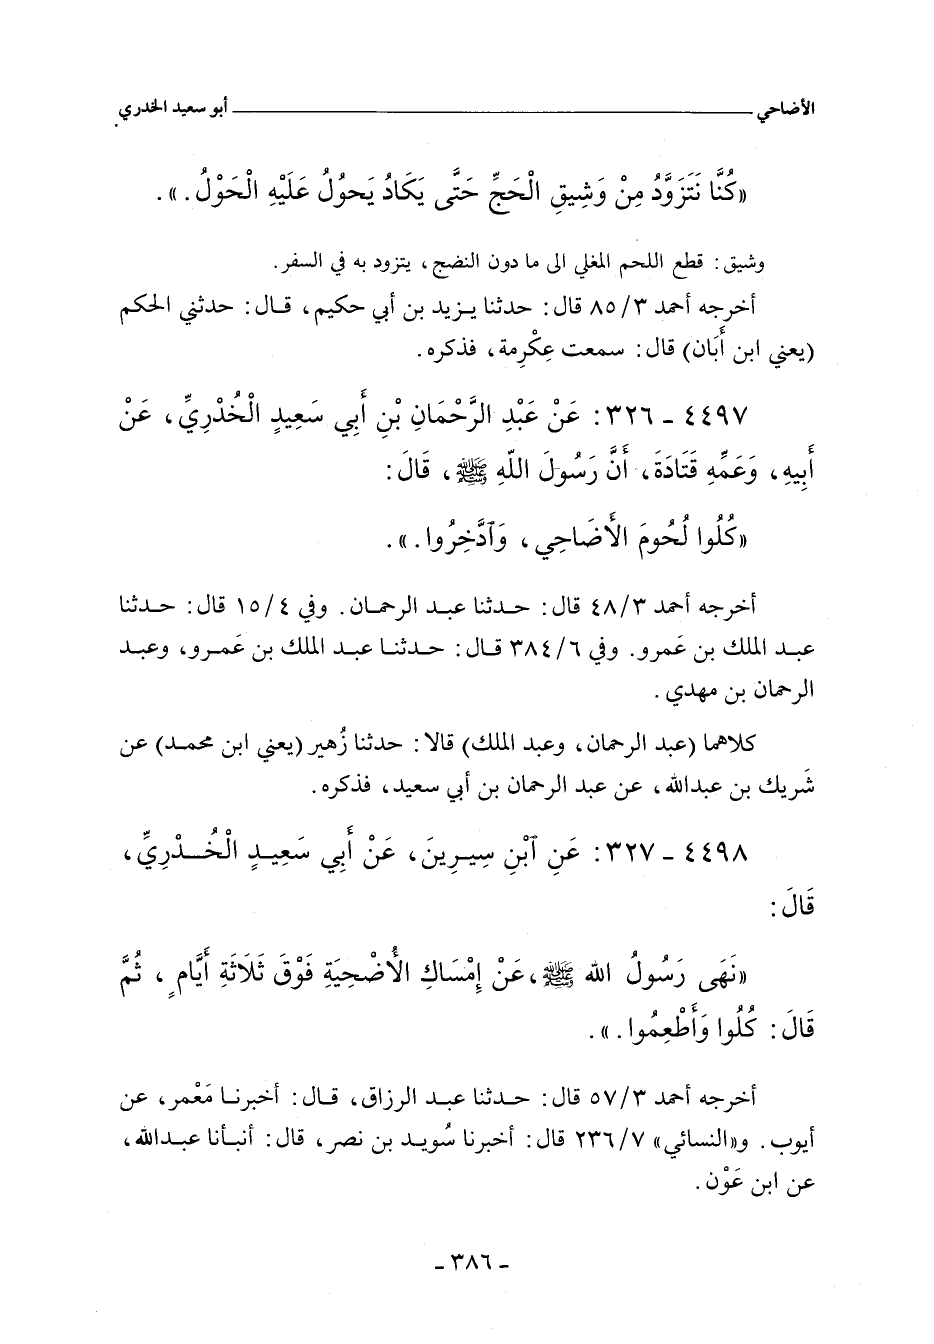 الأضاحي ــــــــــــــــــــ أبو سعيد الخدري
«كُنَّا نَتَزَوَّدُ مِنْ وَشِيقِ الْحَجِّ حَتَّى يَكَادُ يَحُولُ عَلَيْهِ الْحَوْلُ.».
وشيق: قطع اللحم المغلي الى ما دون النضج، يتزود به في السفر.
أخرجه أحمد ٣/٨٥ قال: حدثنا يزيد بن أبي حكيم، قال: حدثني الحكم
(يعني ابن أَبَان) قال: سمعت عِكْرِمة، فذكره.
٤٤٩٧ ـ ٣٢٦: عَنْ عَبْدِ الرَّحْمَانِ بْنِ أَبِي سَعِيدٍ الْخُدْرِيِّ، عَنْ
أَبِيهِ، وَعَمِّهِ قَتَادَةَ، أَنَّ رَسُولَ اللّهِ ﷺ، قَالَ:
«كُلُوا لُحُومَ الأَضَاحِي، وَٱدَّخِرُوا.».
أخرجه أحمد ٣/٤٨ قال: حدثنا عبد الرحمان. وفي ٤/١٥ قال: حدثنا
عبد الملك بن عَمرو. وفي ٦/٣٨٤ قال: حدثنا عبد الملك بن عَمرو، وعبد
الرحمان بن مهدي.
كلاهما (عبد الرحمان، وعبد الملك) قالا: حدثنا زُهير (يعني ابن محمد) عن
شَريك بن عبدالله، عن عبد الرحمان بن أبي سعيد، فذكره.
٤٤٩٨ ـ ٣٢٧: عَنِ ٱبْنِ سِيرِينَ، عَنْ أَبِي سَعِيدٍ الْخُدْرِيِّ،
قَالَ:
«نَهَى رَسُولُ الله ﷺ، عَنْ إِمْسَاكِ الأُضْحِيَةِ فَوْقَ ثَلَاثَةِ أَيَّامٍ، ثُمَّ
قَالَ: كُلُوا وَأَطْعِمُوا.».
أخرجه أحمد ٣/٥٧ قال: حدثنا عبد الرزاق، قال: أخبرنا مَعْمر، عن
أيوب. و«النسائي» ٧/٢٣٦ قال: أخبرنا سُويد بن نصر، قال: أنبأنا عبدالله،
عن ابن عَوْن.
ـ ٣٨٦ ـ